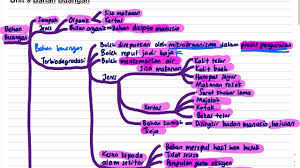 Unit 9 Bahan buangan
Bahan Buangan
Sampah
Jenis
Organik
Sisa makanan
Kertas
Bukan organik
Bahan dicipta manusia
Bahan buangan Terbiodegradasi
Boleh diuraikan oleh mikroorganisma dalam proses penguraian
Boleh reput jadi baja
Boleh mencemarkan air
Jenis
Sisa makanan
Kulit telur
Kulit buah
Hampas sayur
Makanan rosak
Kertas
Surat khabar lama
Majalah
Kotak
Bahan kumuh
Disingkir badan manusia, haiwan
Kesan kepada alam sekitar
Bahan mereput hasil bau busuk
Tidak selesa